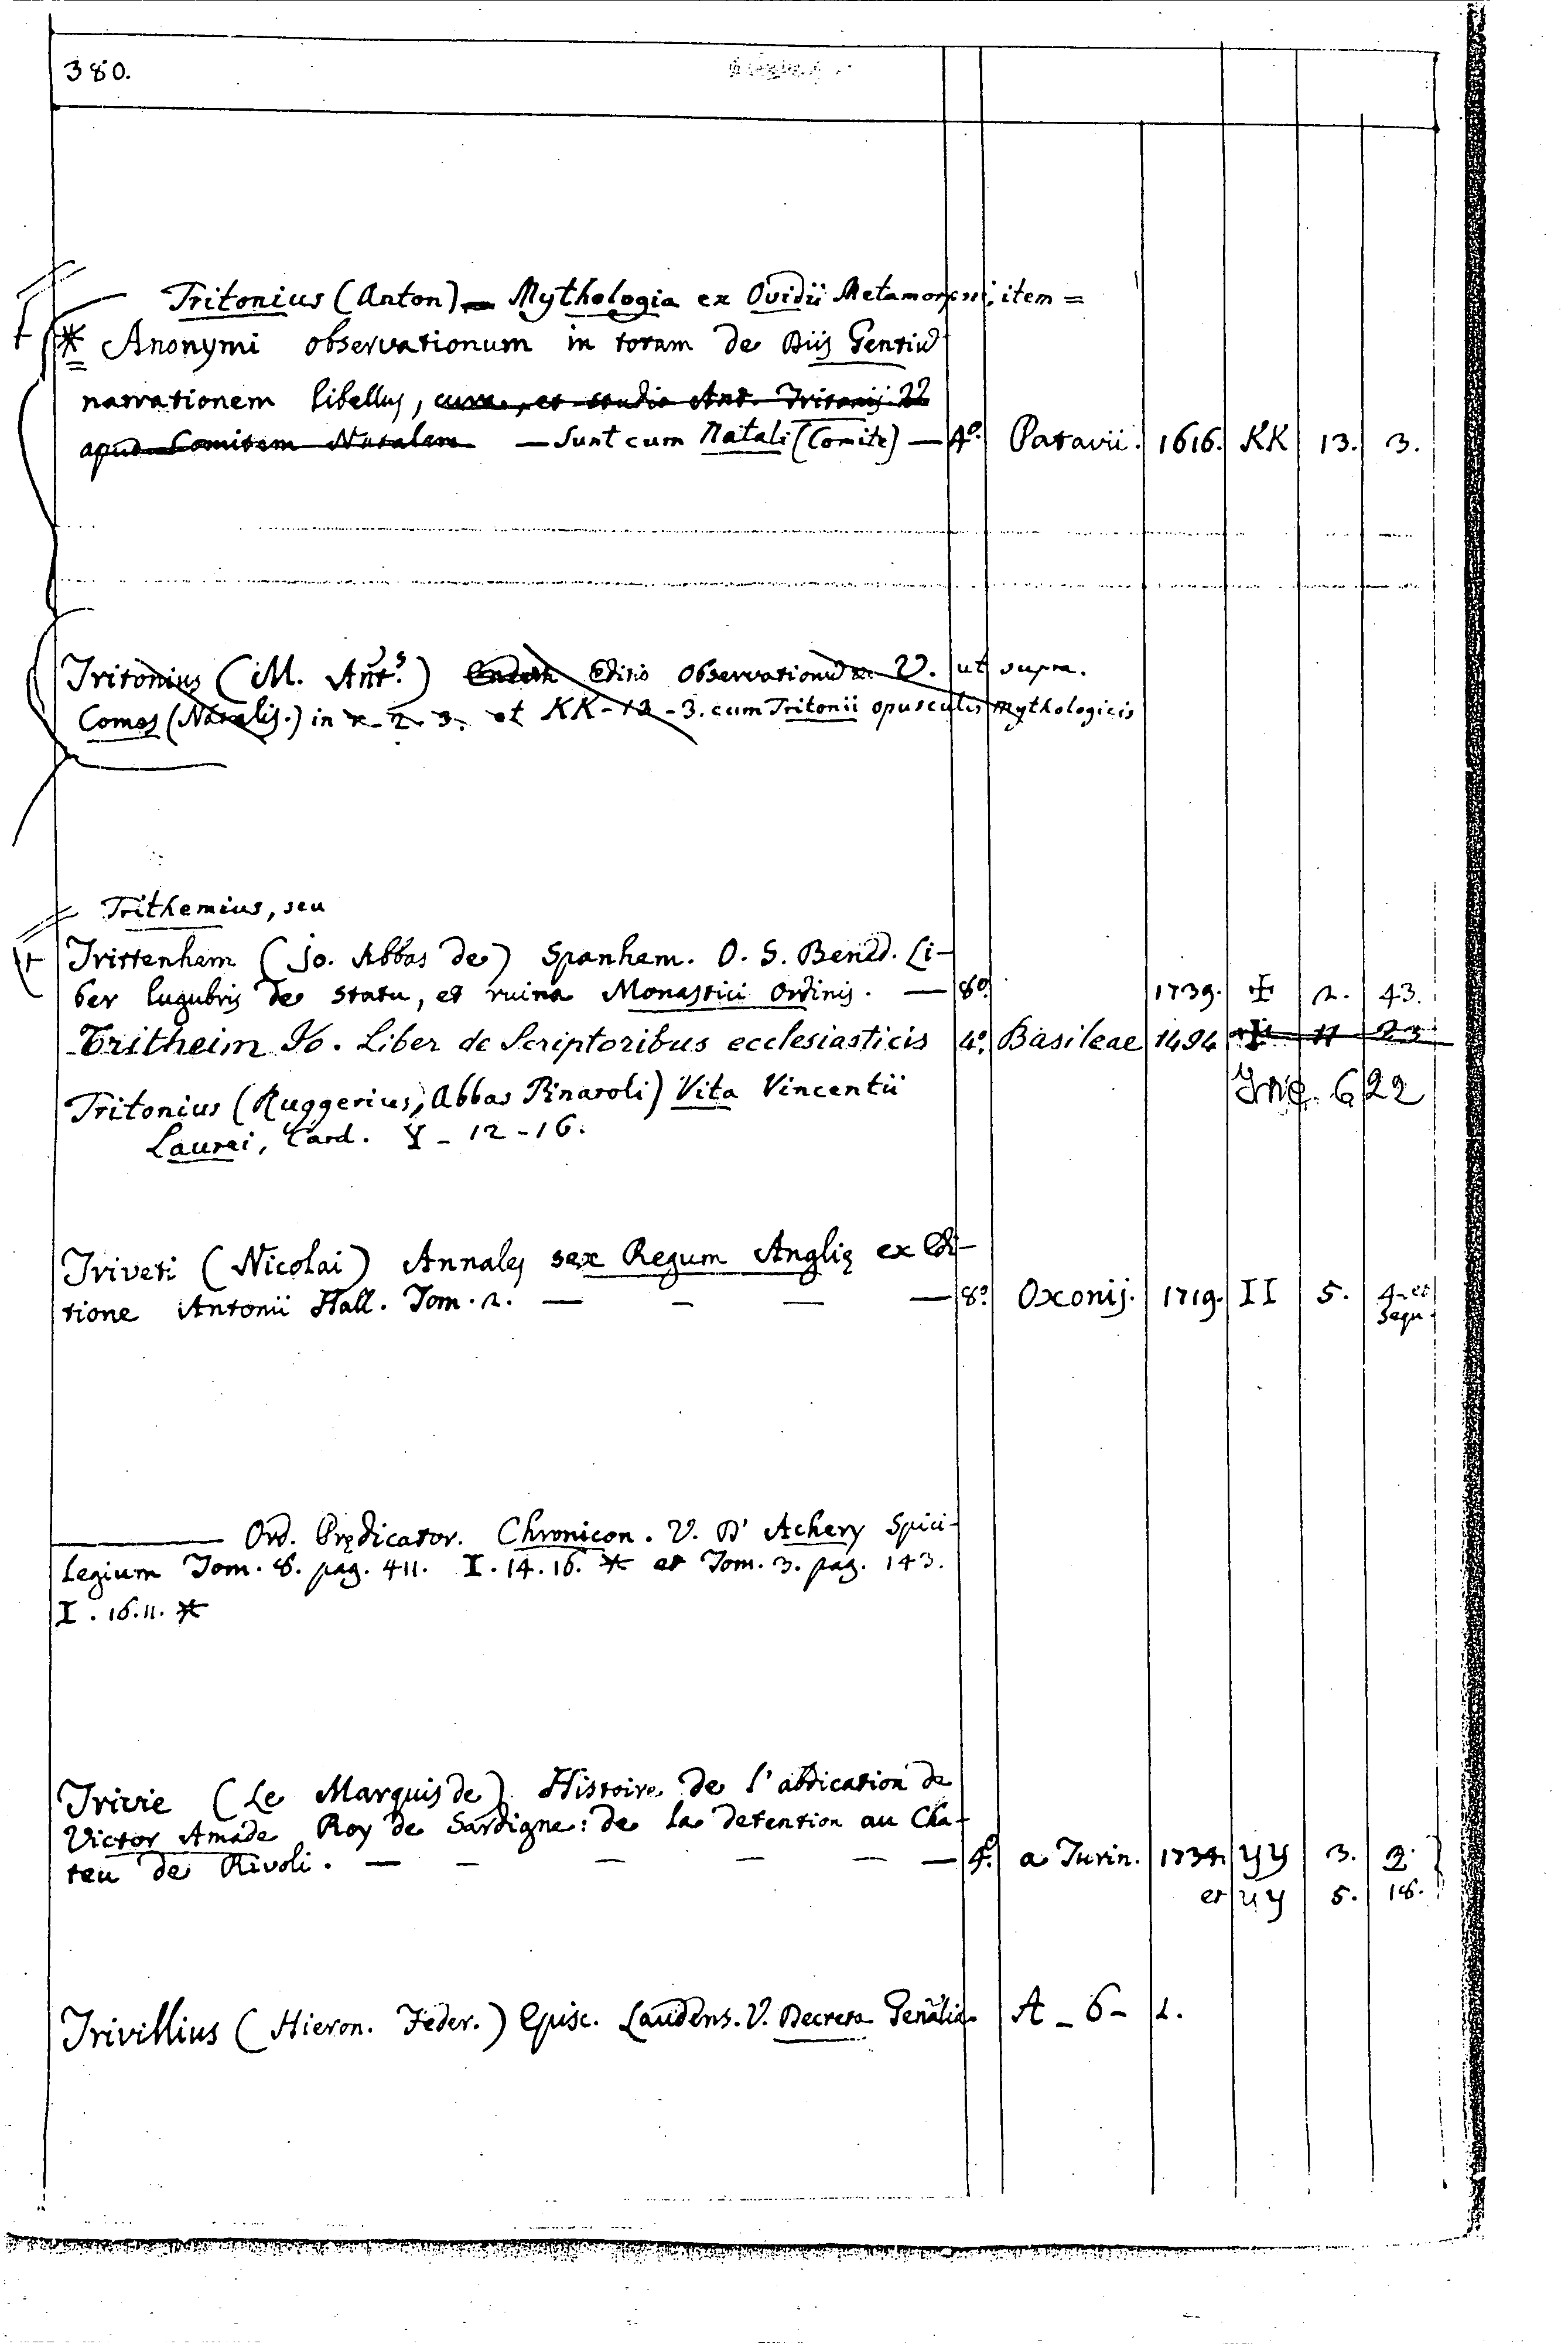 380.
Tritonius (Anton) — Mythologia ex Ovidii Metamorphosi, item =
* Anonymi observationum in totam de Diis Gentiū
narrationem libellus, cura, et studio Ant. Tritonij
apud Comitem Natalem — Sunt cum Natali (Comite) — 4º. Patavii. 1616. KK 13. 3.
Tritonius (M. Ant.s) Editio Observationū V. ut supra.
Comes (Natalis.) in x-2-3. et KK-13-3. cum Tritonii opusculis mythologicis
Trithemius, seu
Trittenhem (Jo. Abbas de) Spanhem. O. S. Bened. Li-
ber lugubris de statu, et ruina Monastici Ordinis. — 8º. 1739. ✠ 2. 43.
Tritheim Jo. Liber de Scriptoribus ecclesiasticis 4º. Basileae 1494 ✠ 11 23
Inc. 622
Tritonius (Ruggerius, Abbas Pinaroli) Vita Vincentii
Laurei, Card. Y - 12 - 16.
Triveti (Nicolai) Annales sex Regum Anglię ex Edi-
tione Antonii Hall. Tom. 2. — — — — 8º. Oxonij. 1719. II 5. 4. et
sequ.
——— Ord. Prędicator. Chronicon. V. D' Achery Spici-
legium Tom. 8. pag. 411. I. 14. 16. * et Tom. 3. pag. 143.
I. 16. 11. *
Trivie (Le Marquis de) Histoire de l'abdication de
Victor Amade Roy de Sardigne: de la detention au Cha-
teu de Rivoli. — — — — — — 4º. a Turin. 1734. yy 3. 2.
et yy 5. 18.
Trivillius (Hieron. Feder.) Episc. Laudens. V. Decreta Gēnalia A - 6 - 2.